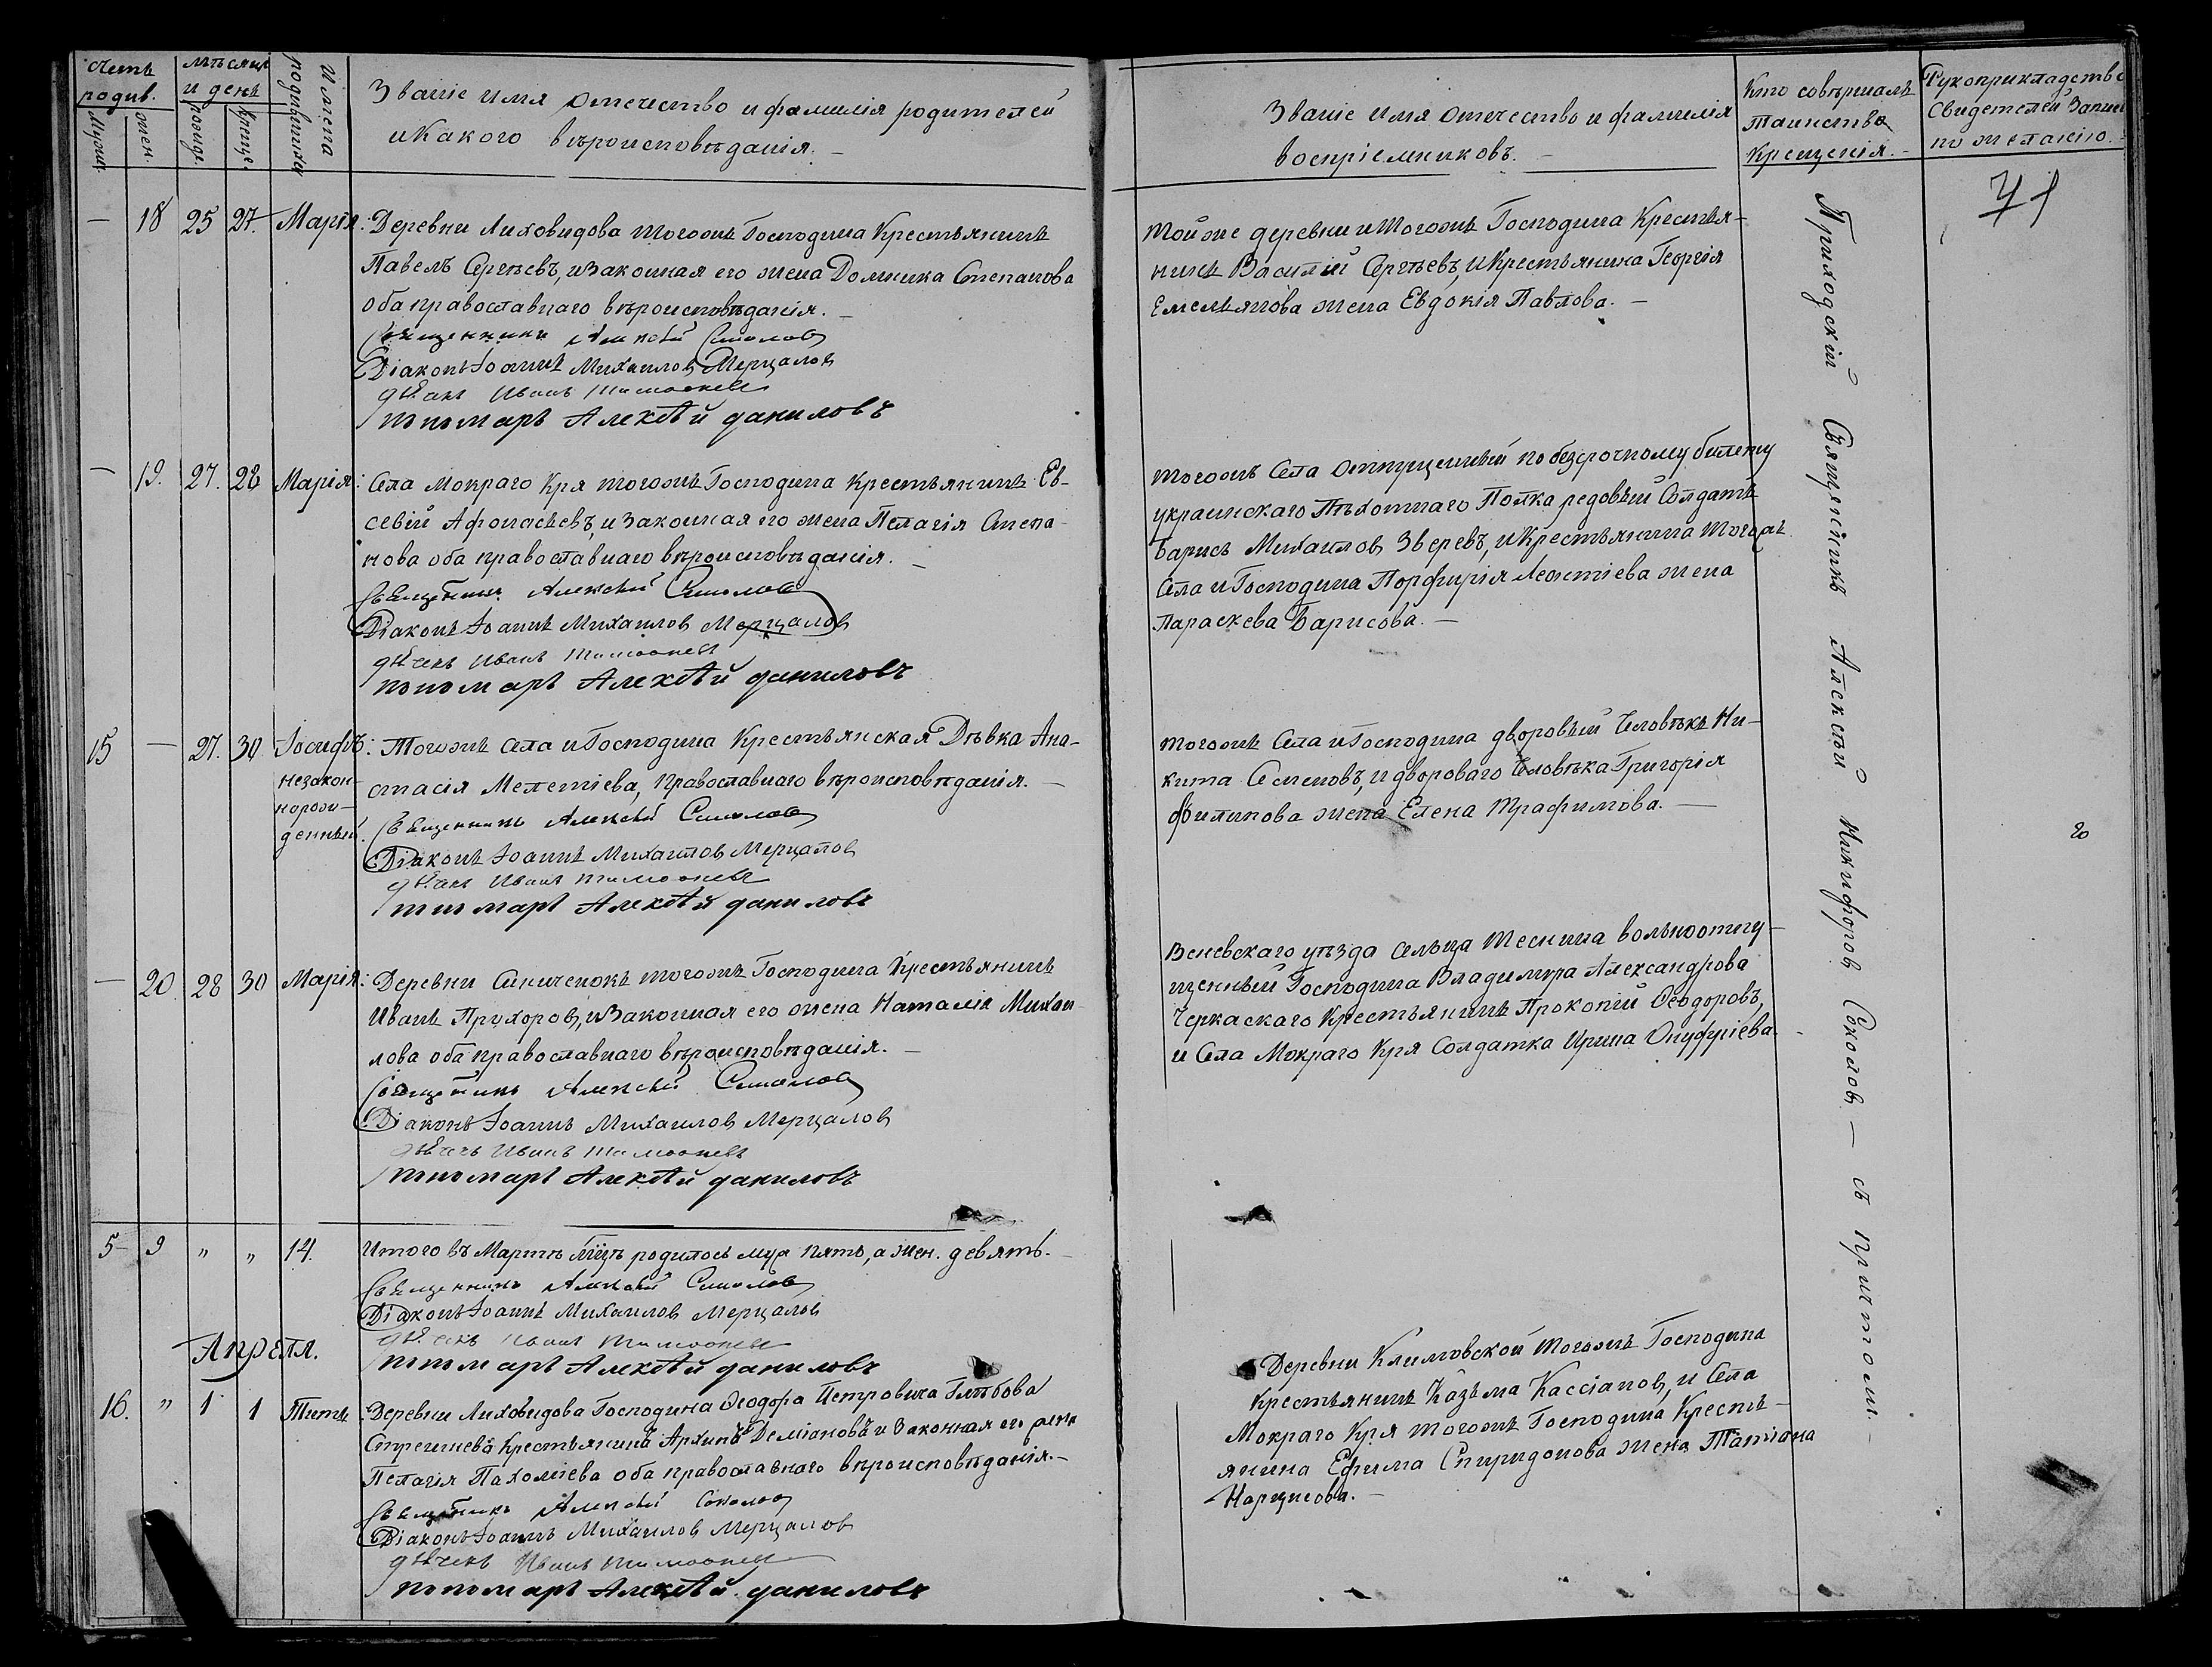 Счетъ родив.
Мужс. жен.
Мѣсяцъ и день
Рожде. Креще.
Имена родившихся
Званіе имя отечество и фамилія родителей
и какого вѣроисповѣданія. —
Званіе имя отечество и фамилія
воспріемниковъ. —
Кто совѣршалъ
Таинство
Крещенія. —
Рукоприкладство
Свидетелей записи
по желанію. —
71
— 18 25 27. Марія: Деревни Лиховидова тогожъ Господина Крестьянинъ
Павелъ Сергѣевъ, и законная его жена Домника Степанова
оба православнаго вѣроисповѣданія. —
Священникъ Алексѣй Соколовъ
Діаконъ Іоаннъ Михаилов Мерцалов
дьячекъ Иванъ Тимоѳеевъ
пономарь Алексѣй даниловъ
Тойже деревни и тогожъ Господина Крестья-
нинъ Василій Сергѣевъ, и Крестьянина Георгія
Емельянова жена Евдокія Павлова. —
— 19. 27. 28 Марія: Села Мокраго Кря тогожъ Господина Крестьянинъ Ев-
севій Афонасьевъ, и законная его жена Пелагія Степа-
нова оба православнаго вѣроисповѣданія. —
Священникъ Алексѣй Соколовъ
Діаконъ Іоаннъ Михаилов Мерцалов
дьячекъ Иванъ Тимоѳеевъ
пономарь Алексѣй даниловъ
Тогожъ Села отпущенный по безсрочному билету
украинскаго Пѣхотнаго Полка редовый Солдатъ
Барисъ Михаилов Зверевъ, и Крестьянина Тогожъ
Села и Господина Порфирія Леонтіева жена
Параскева Барисова. —
15 — 27. 30 Іосифъ: Тогожъ Села и Господина Крестьянская Дѣвка Ана-
незакон-
норож-
денный.
стасія Мелетіева, православнаго вѣроисповѣданія. —
Священникъ Алексѣй Соколовъ
Діаконъ Іоаннъ Михаилов Мерцалов
дьячекъ Иванъ Тимоѳеевъ
пономарь Алексѣй даниловъ
Тогожъ Села и Господина дворовый Человѣкъ Ни-
кита Семеновъ, и двороваго Человѣка Григорія
Филипова жена Елена Трафимова. —
— 20. 28 30 Марія: Деревни Синиченокъ тогожъ Господина Крестьянинъ
Иванъ Прохоров, и законная его жена Наталія Михаи-
лова оба православнаго вѣроисповѣданія. —
Священникъ Алексѣй Соколовъ
Діаконъ Іоаннъ Михаилов Мерцалов
дьячекъ Иванъ Тимоѳеевъ
пономарь Алексѣй даниловъ
Веневскаго уѣзда сельца Теснина вольноотпу-
щенный Господина Владимира Александрова
Черкаскаго Крестьянинъ Прокопій Ѳеодоровъ,
и Села Мокраго Кря Солдатка Ирина Онуфріева.
Приходскій Священникъ Алексѣй Никифоров Соколов — съ причтом. —
5 — 9 „ „ 14. Итого въ Мартѣ мцѣ родилось муж пять, а жен. девять. —
Священникъ Алексѣй Соколовъ
Діаконъ Іоаннъ Михаилов Мерцалов
дьячекъ Иванъ Тимоѳеевъ
пономарь Алексѣй даниловъ
Апреля.
16. „ 1 1 Титъ: Деревни Лиховидова Господина Ѳеодора Петровича Глѣбова
Стрешнева Крестьянинъ Архипъ Деміановъ и законная его жена
Пелагія Пахоміева оба православнаго вѣроисповѣданія. —
Священникъ Алексѣй Соколов
Діаконъ Іоаннъ Михаилов Мерцалов
дьячекъ Иванъ Тимоѳеевъ
пономарь Алексѣй даниловъ
Деревни Климовской тогожъ Господина
Крестьянинъ Казьма Кассіанов, и Села
Мокраго Кря тогожъ Господина Кресть-
янина Ефима Спиридонова жена Татіана
Нарцисова. —